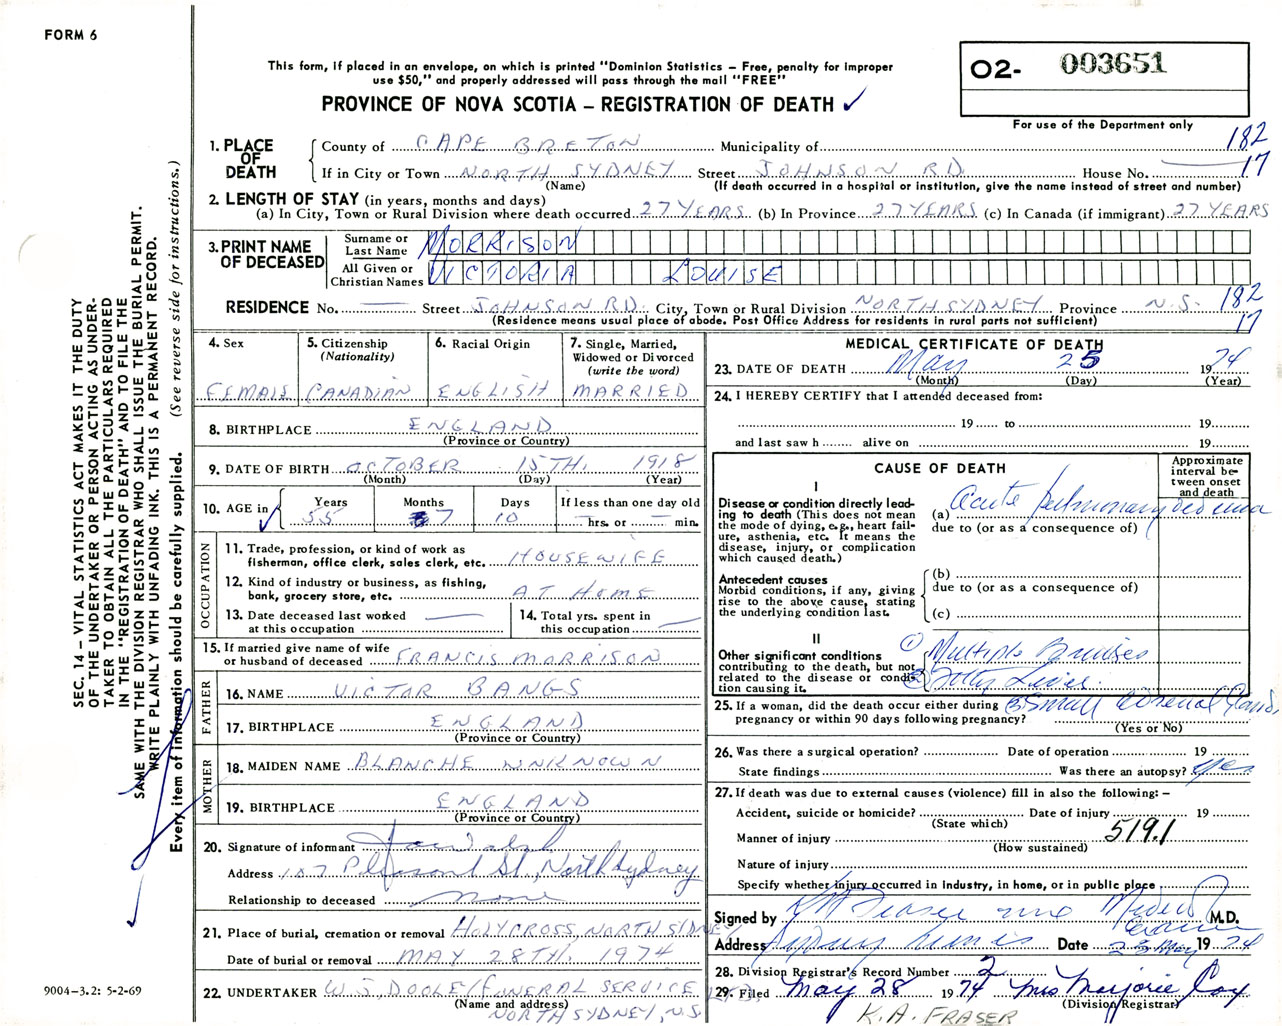 FORM 6
This form, if placed in an envelope, on which is printed "Dominion Statistics – Free, penalty for improper
use $50," and properly addressed will pass through the mail "FREE"
O2- 003651
PROVINCE OF NOVA SCOTIA – REGISTRATION OF DEATH ✓
For use of the Department only
182
17
1. PLACE OF DEATH
County of CAPE BRETON Municipality of
If in City or Town NORTH SYDNEY Street JOHNSON RD. House No. —
(Name) (If death occurred in a hospital or institution, give the name instead of street and number)
2. LENGTH OF STAY (in years, months and days)
(a) In City, Town or Rural Division where death occurred 27 YEARS (b) In Province 27 YEARS (c) In Canada (if immigrant) 27 YEARS
3. PRINT NAME OF DECEASED
Surname or Last Name MORRISON
All Given or Christian Names VICTORIA LOUISE
RESIDENCE No. — Street JOHNSON RD. City, Town or Rural Division NORTH SYDNEY Province N.S. 182
17
(Residence means usual place of abode. Post Office Address for residents in rural parts not sufficient)
4. Sex
FEMALE
5. Citizenship
(Nationality)
CANADIAN
6. Racial Origin
ENGLISH
7. Single, Married,
Widowed or Divorced
(write the word)
MARRIED
8. BIRTHPLACE ENGLAND
(Province or Country)
9. DATE OF BIRTH OCTOBER 15TH. 1918
(Month) (Day) (Year)
10. AGE in
Years Months Days If less than one day old
55 7 10 — hrs. or — min.
OCCUPATION
11. Trade, profession, or kind of work as
fisherman, office clerk, sales clerk, etc. HOUSEWIFE
12. Kind of industry or business, as fishing,
bank, grocery store, etc. AT HOME
13. Date deceased last worked
at this occupation —
14. Total yrs. spent in
this occupation —
15. If married give name of wife
or husband of deceased FRANCIS MORRISON
FATHER
16. NAME VICTOR BANGS
17. BIRTHPLACE ENGLAND
(Province or Country)
MOTHER
18. MAIDEN NAME BLANCHE UNKNOWN
19. BIRTHPLACE ENGLAND
(Province or Country)
20. Signature of informant
Address 107 Pleasant St, North Sydney
Relationship to deceased None
21. Place of burial, cremation or removal HOLYCROSS NORTH SYDNEY
Date of burial or removal MAY 28TH. 1974
22. UNDERTAKER W. J. DOOLEY FUNERAL SERVICE LTD.
(Name and address)
NORTH SYDNEY, N.S.
MEDICAL CERTIFICATE OF DEATH
23. DATE OF DEATH May 25 1974
(Month) (Day) (Year)
24. I HEREBY CERTIFY that I attended deceased from:
19 to 19
and last saw h alive on 19
CAUSE OF DEATH
Approximate
interval be-
tween onset
and death
I
Disease or condition directly lead-
ing to death (This does not
mean the mode of dying, e.g., heart fail-
ure, asthenia, etc. It means the
disease, injury, or complication
which caused death.)
(a) Acute pulmonary oedema
due to (or as a consequence of)
Antecedent causes
Morbid conditions, if any, giving
rise to the above cause, stating
the underlying condition last.
(b)
due to (or as a consequence of)
(c)
II
Other significant conditions
contributing to the death, but not
related to the disease or condi-
tion causing it.
① Multiple Bruises
② Fatty Liver.
3) Small adrenal Glands
25. If a woman, did the death occur either during
pregnancy or within 90 days following pregnancy?
(Yes or No)
26. Was there a surgical operation? Date of operation 19
State findings Was there an autopsy? yes
27. If death was due to external causes (violence) fill in also the following:–
Accident, suicide or homicide? Date of injury 19
(State which)
Manner of injury 519.1
(How sustained)
Nature of injury
Specify whether injury occurred in industry, in home, or in public place
Signed by Fraser M.D.
Address Sydney Mines Date 28 May 1974
28. Division Registrar's Record Number 2
29. Filed May 28 1974 Mrs Marjorie Cox
(Division Registrar)
K.A. FRASER
SEC. 14 – VITAL STATISTICS ACT MAKES IT THE DUTY
OF THE UNDERTAKER OR PERSON ACTING AS UNDER-
TAKER TO OBTAIN ALL THE PARTICULARS REQUIRED
IN THE "REGISTRATION OF DEATH" AND TO FILE THE
SAME WITH THE DIVISION REGISTRAR WHO SHALL ISSUE THE BURIAL PERMIT.
WRITE PLAINLY WITH UNFADING INK. THIS IS A PERMANENT RECORD.
Every item of information should be carefully supplied. (See reverse side for instructions.)
9004-3.2: 5-2-69